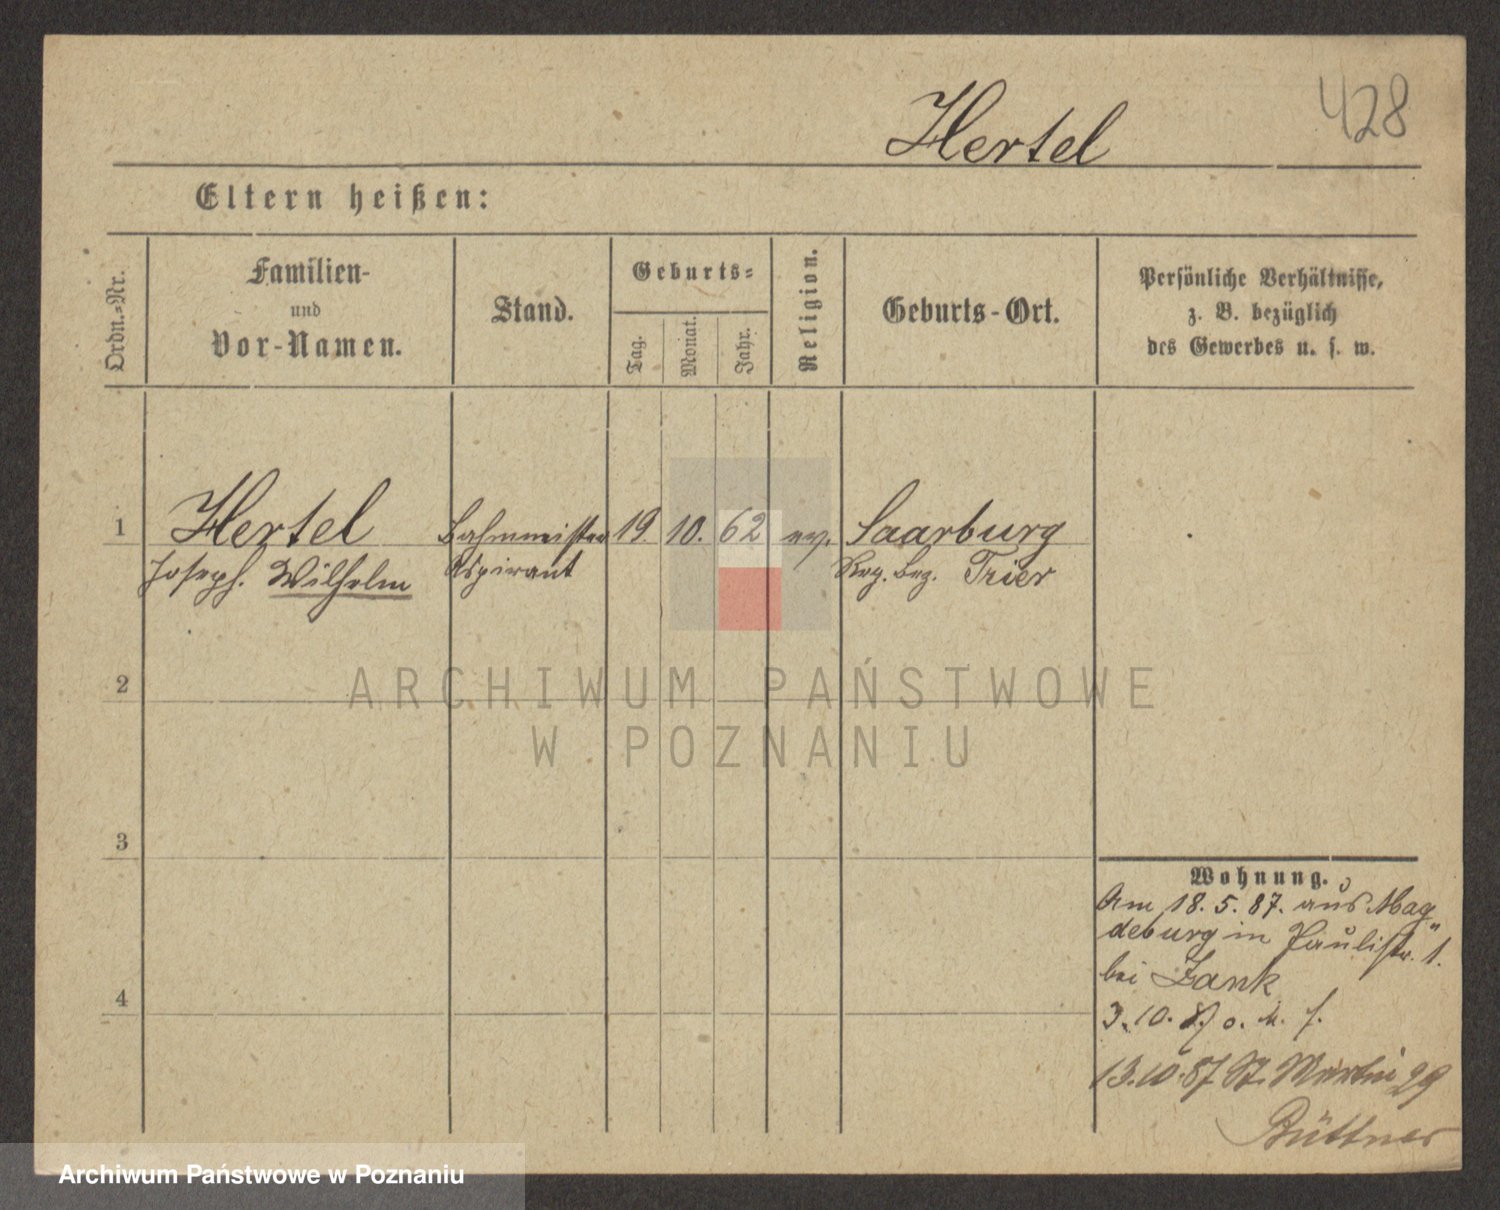 428
Hertel
Eltern heißen:
Ordn.-Nr.
Familien-
und
Vor-Namen.
Stand.
Geburts-
Tag.
Monat.
Jahr.
Religion.
Geburts-Ort.
Persönliche Verhältnisse,
z. B. bezüglich
des Gewerbes u. s. w.
1 Hertel Bahnmeister 19. 10. 62 ev. Saarburg
Joseph. Wilhelm Aspirant Reg. Bez. Trier
2
3
4
Wohnung.
Am 18. 5. 87. aus Mag
deburg in Paulistr. 1.
bei Zank
3. 10. 87 o. M. f.
13.10.87 St. Martin 29
Büttner
ARCHIWUM PAŃSTWOWE
W POZNANIU
Archiwum Państwowe w Poznaniu